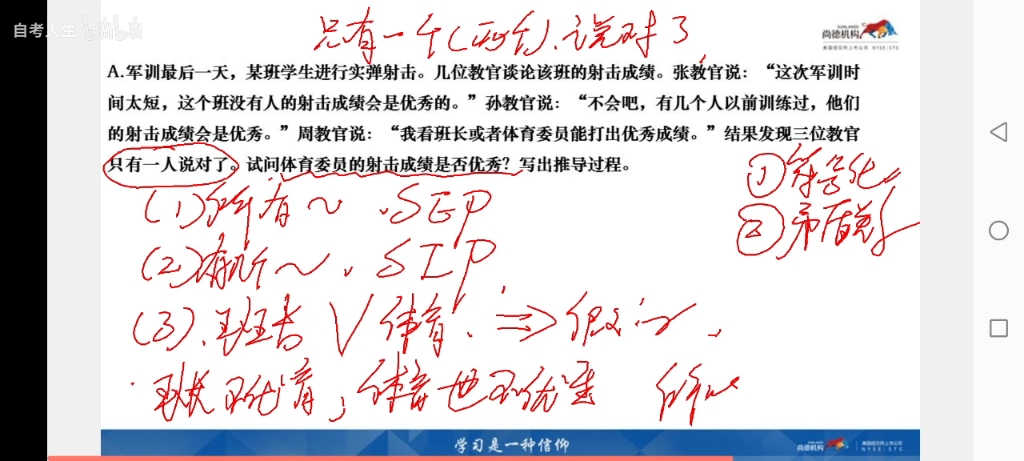 自考人生 bilibili
只有一个(两个)、说对了
尚德机构
A.军训最后一天，某班学生进行实弹射击。几位教官谈论该班的射击成绩。张教官说：“这次军训时
间太短，这个班没有人的射击成绩会是优秀的。”孙教官说：“不会吧，有几个人以前训练过，他们
的射击成绩会是优秀。”周教官说：“我看班长或者体育委员能打出优秀成绩。”结果发现三位教官
只有一人说对了。试问体育委员的射击成绩是否优秀？写出推导过程。
①符号化
②矛盾
(1)所有~.SEP
(2)有些~. SIP
(3).班长∨体育. ⇒假
班长不优秀,体育也不优秀 所以
学习是一种信仰
尚德机构